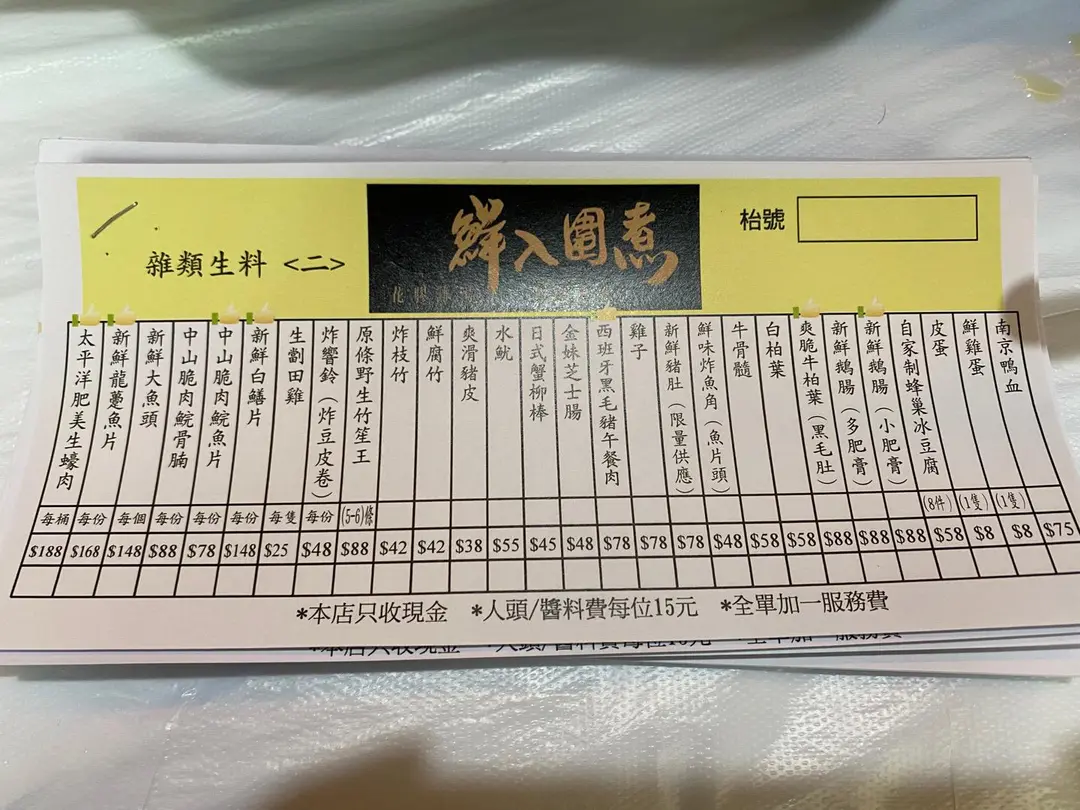 鮮入圍煮
枱號
雜類生料 <二>
太平洋肥美生蠔肉
新鮮龍躉魚片
新鮮大魚頭
中山脆肉鯇骨腩
中山脆肉鯇魚片
新鮮白鱔片
生劏田雞
炸響鈴（炸豆皮卷）
原條野生竹笙王
炸枝竹
鮮腐竹
爽滑豬皮
水魷
日式蟹柳棒
金妹芝士腸
西班牙黑毛豬午餐肉
雞子
新鮮豬肚（限量供應）
鮮味炸魚角（魚片頭）
牛骨髓
白柏葉
爽脆牛柏葉（黑毛肚）
新鮮鵝腸（多肥膏）
新鮮鵝腸（小肥膏）
自家制蜂巢冰豆腐
皮蛋
鮮雞蛋
南京鴨血
每桶 每份 每個 每份 每份 每份 每隻 每份 (5-6)條 (8件) (1隻) (1隻)
$188 $168 $148 $88 $78 $148 $25 $48 $88 $42 $42 $38 $55 $45 $48 $78 $78 $78 $48 $58 $58 $88 $88 $88 $58 $8 $8 $75
*本店只收現金 *人頭/醬料費每位15元 *全單加一服務費